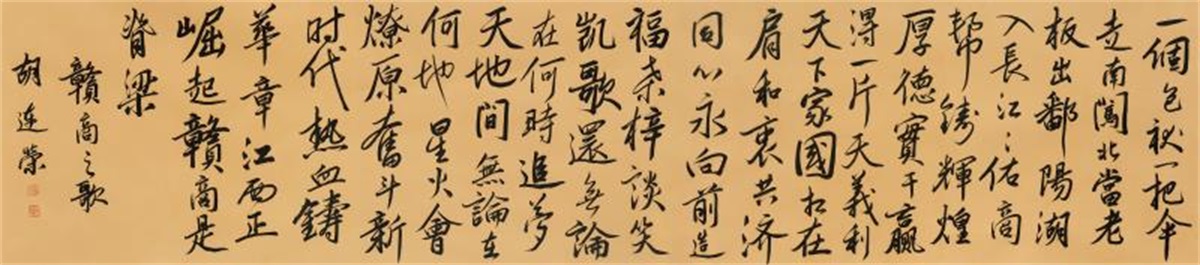 一個包袱一把伞
走南闖北當老
板出鄱陽湖
入長江〻佑商
幇鑄輝煌
厚德實干贏
得一片天義利
天下家國扛在
肩和衷共济
同心永向前造
福桑梓談笑
凱歌還無論
在何時追夢
天地間無論在
何地星火會
燎原奮斗新
时代熱血鑄
華章江西正
崛起贛商是
脊梁
贛商之歌
胡连榮